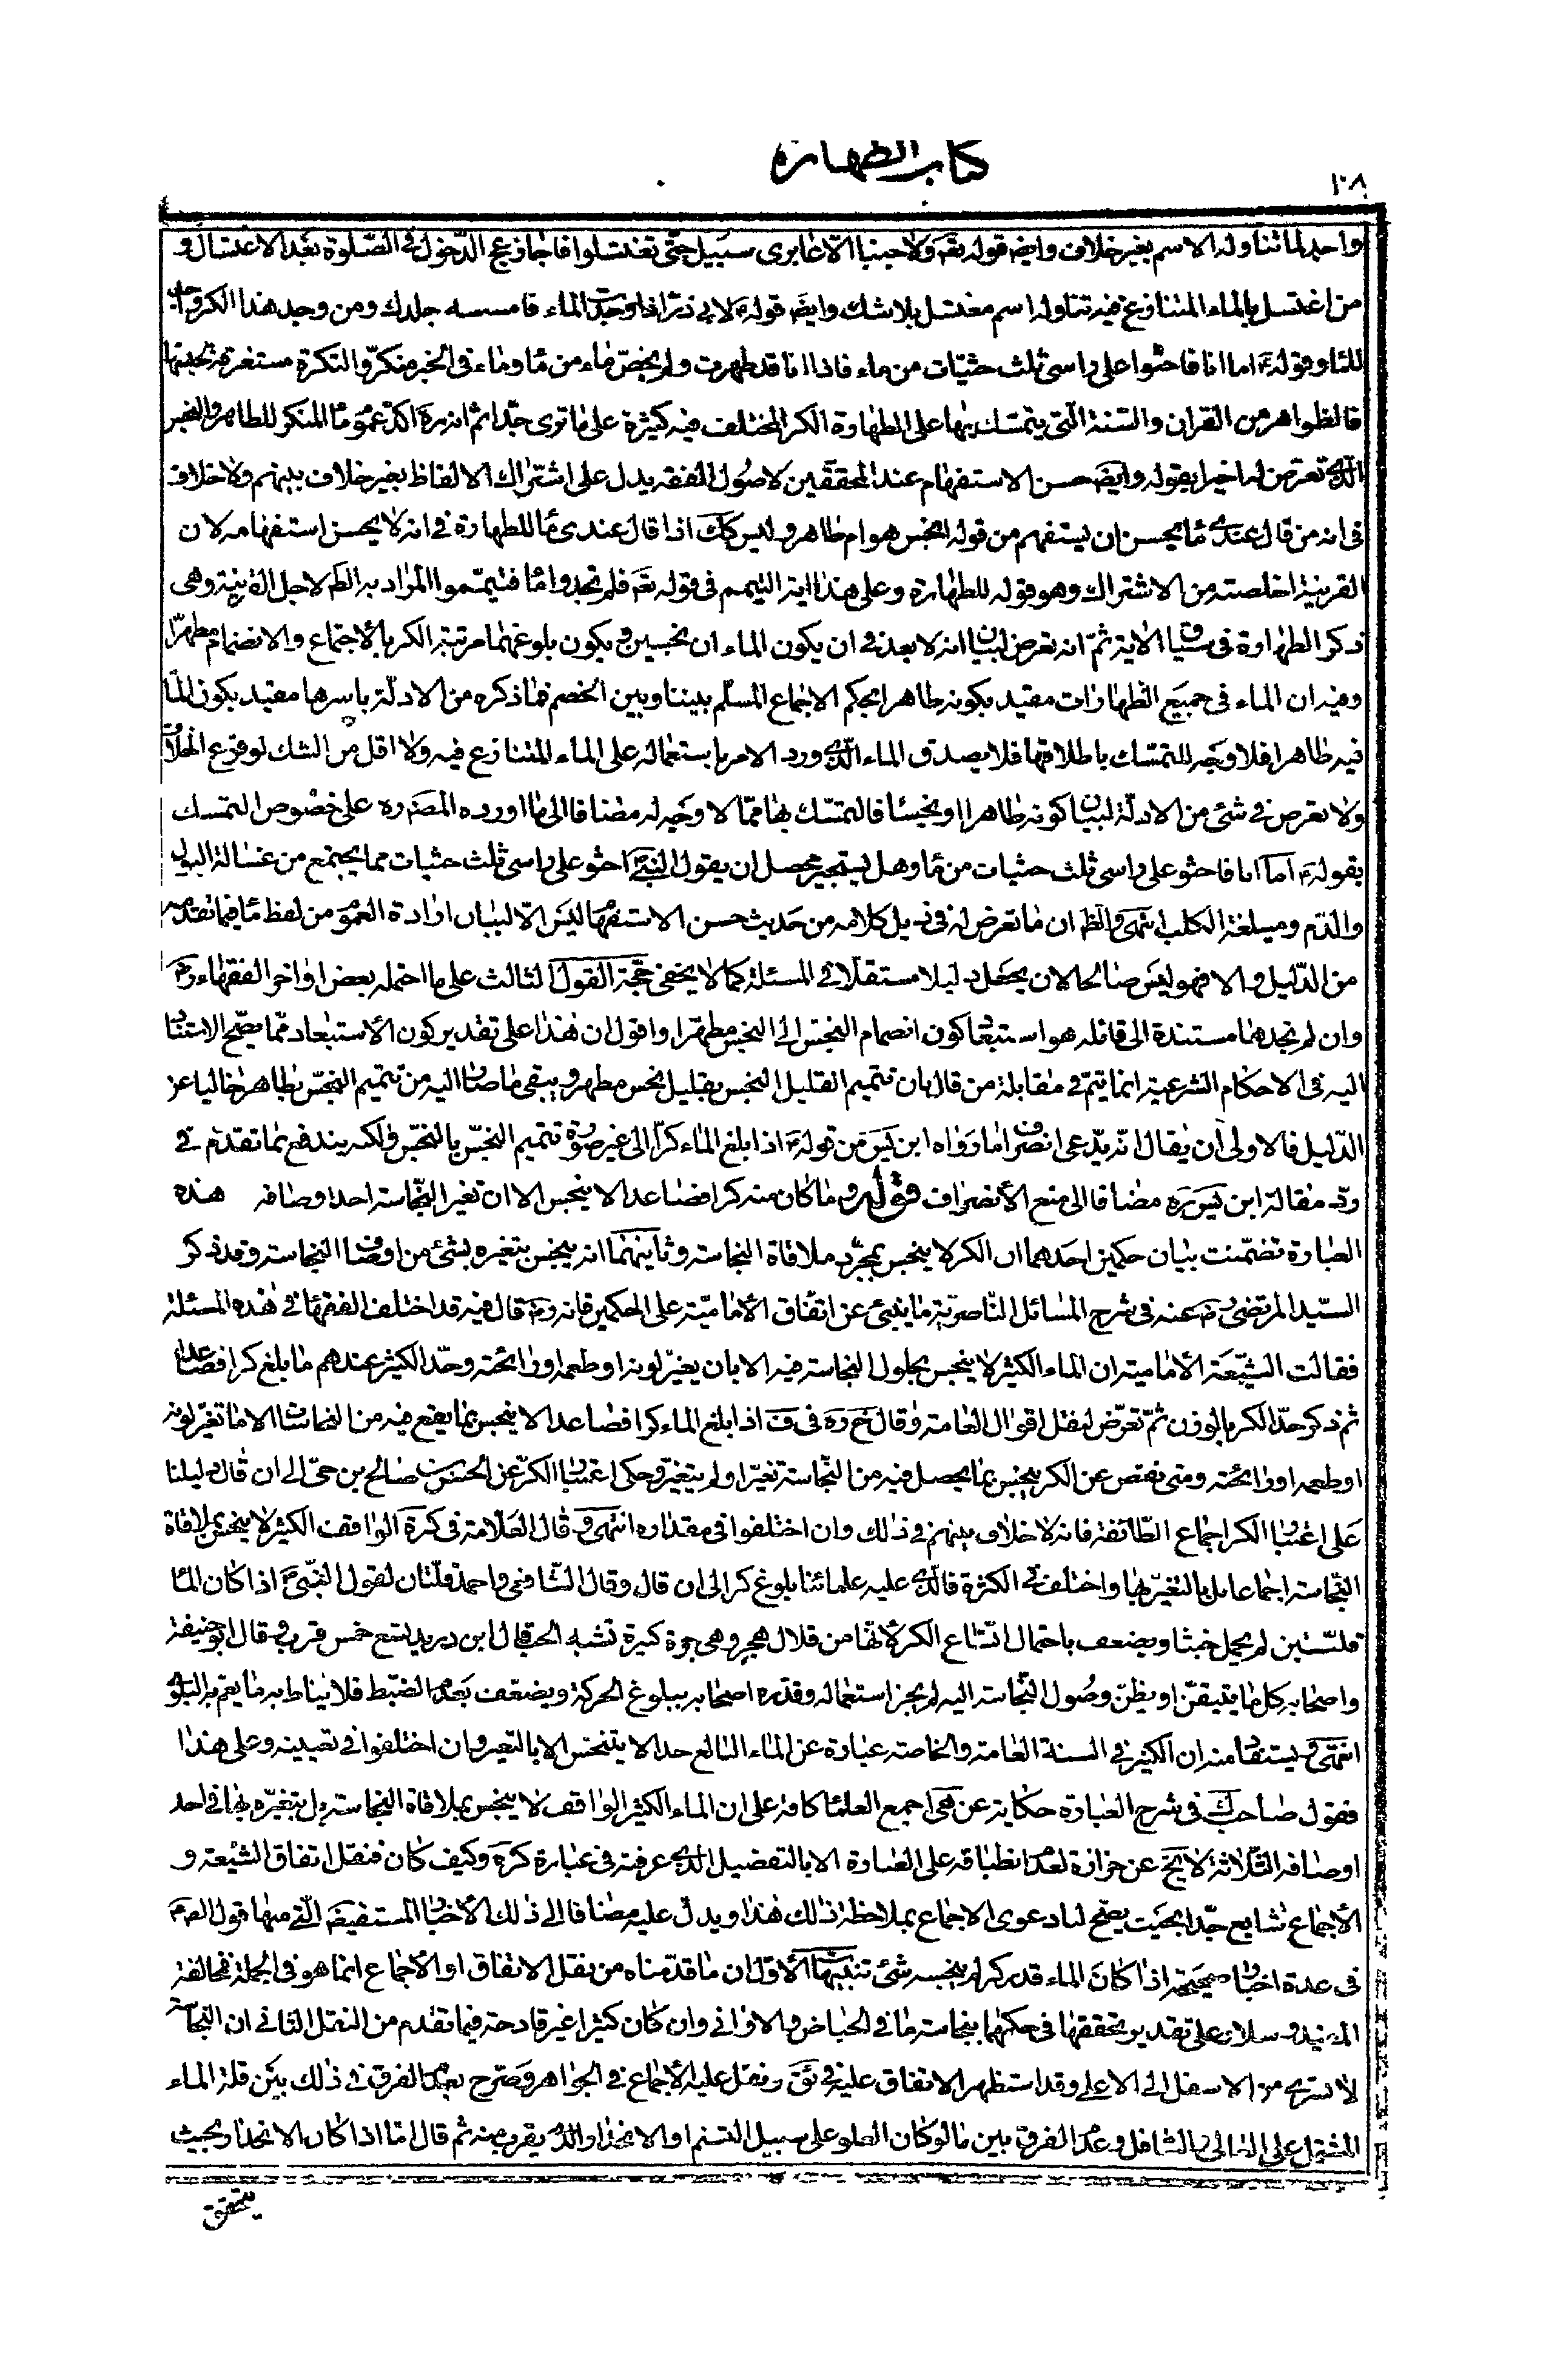 كتاب الطهارة
١٠٨
واحد لما تناوله الاسم بغير خلاف وايضا قوله تعم ولا جنبا الّا عابرى سبيل حتّى تغتسلوا فاجازع الدّخول فى الصّلوة بعد الاغتسال و
من اغتسل بالماء المتنازع فيه تناوله اسم مغتسل بلا شك وايضا قوله ع لابى ذر اذا وجدت الماء فامسسه جلدك ومن وجد هذا الكر واجد
للماء وقوله ع اما انا فاحثوا على راسى ثلث حثيّات من ماء فاذا انا قد طهرت ولم يخصّ ماء من ماء وماء فى الخبر منكرّ والنكرة مستغرقة لجنسها
فالظواهر من القران والسّنة الّتى يتمسّك بها على طهاوة الكر المختلف فيه كثيرة على ما ترى جدّا ثم انه ره اكد عموم الماء المنكر للطاهر والنجس
الّذى تعرض له اخيرا بقوله وايضا حسن الاستفهام عند المحققين لاصول الفقه يدل على اشتراك الالفاظ بغير خلاف بينهم ولا خلاف
فى انه من قال عندى ماء يحسن ان يستفهم من قوله انجس هو ام طاهر وليس كك اذا قال عندى ماء للطهارة فى انه لا يحسن استفهامه لان
القرينة اخلصته من الاشتراك وهو قوله للطهارة وعلى هذا اية التيمم فى قوله تعم فلم تجدوا ماء فتيمّموا المراد به الطم لاجل القرينة وهى
ذكر الطهارة فى سياق الاية ثمّ انه تعرض لبيان انه لا بعد فى ان يكون الماء ان نجسين ويكون بلوغهما مرتبة الكر بالاجتماع والانضمام مطهرّا
وفيه ان الماء فى جميع الطهاوات مقيد بكونه طاهرا بحكم الاجماع المسلّم بيننا وبين الخصم فما ذكره من الادلّة باسرها مقيد بكون الماء
فيه طاهرا فلا وجه للتمسّك باطلاقها فلا يصدق الماء الّذى ورد الامر باستعماله على الماء المتنازع فيه ولا اقل من الشك لوقوع الخلاف
ولا تعرض فى شئ من الادلّة لبيان كونه طاهرا او نجسا فالتمسّك بها ممّا لا وجه له مضافا الى ما اورده المص ره على خصوص التمسك
بقوله ع امّا انا فاحثو على راسى ثلث حثيات من ماء وهل يستجيز محصل ان يقول النبى ع احثو على راسى ثلث حثيات مما يجتمع من غسالة البول
والدّم وميلغة الكلب انتهى والظ ان ما تعرض له فى ذيل كلامه من حديث حسن الاستفهام ليس الّا لبيان ارادة العموم من لفظ ماء فيما تقدم
من الدّليل والا فهو ليس صالحا لان يجعل دليلا مستقلا فى المسئلة كما لا يخفى حجّة القول الثالث على ما احتمله بعض اواخر الفقهاء ره
وان لم نجدها مستندة الى قائله هو استبعاد كون انضمام النجس الى النجس مطهرّا واقول ان هذا على تقدير كون الاستبعاد ممّا يصّح الاستناد
اليه فى الاحكام الشرعية انما يتمّ فى مقابلة من قال بان تتميم القليل النجس بقليل نجس مطهر ويبقى ما صار اليه من تتميم النجسّ بطاهر خاليا عن
الدّليل فالاولى ان يقال انّه يدّعى انصراف ما رواه ابن ادريس من قوله ع اذا بلغ الماء كرّا الى غير صورة تتميم النجسّ بالنجّس ولكنه يندفع بما تقدّم فى
ردّ مقالة ابن ادريس ره مضافا الى منع الانصراف قوله وما كان منه كرا فصاعدا لا ينجس الا ان تغير النّجاسة احد اوصافه هذه
العبارة تضمّنت بيان حكمين احدهما ان الكر لا ينجس بمجرّد ملاقاة النجاسة وثانيهما انه ينجس بتغيره بشئ من اوصاف النجاسة وقد ذكر
السّيد المرتضى رض عنه فى شرح المسائل النّاصريّة ما ينبئ عن اتفاق الاماميّة على الحكمين فانه ره قال فيه قد اختلف الفقهاء فى هذه المسئلة
فقالت الشّيعة الاماميّة ان الماء الكثير لا ينجس بحلول النجاسة فيه الا بان يغيّر لونه او طعمه او رائحته وحدّ الكثير عندهم ما بلغ كرا فصاعدا
ثم ذكر حدّ الكر بالوزن ثمّ تعرّض لنقل اقوال العامة وقال خ ره فى ف اذا بلغ الماء كرا فصاعدا لا ينجس بما يقع فيه من النجاسات الا ما تغيّر لونه
او طعمه او رائحته ومتى نقص عن الكر ينجس بما يحصل فيه من النّجاسة تغيّر او لم يتغير وحكى اعتبار الكرّ عن الحسن بن صالح بن حىّ الى ان قال دليلنا
على اعتبار الكر اجماع الطّائفة فانه لا خلاف بينهم فى ذلك وان اختلفوا فى مقداره انتهى وقال العلّامة فى كرة الواقف الكثير لا ينجس بملاقاة
النّجاسة اجماعا بل بالتغيّر بها واختلف فى الكثرة فالّذى عليه علمائنا بلوغ كر الى ان قال وقال الشّافعى واحمد قلّتان لقول النّبى ص اذا كان الماء
قلّتين لم يحمل خبثا ويضعف باحتمال اتّساع الكر لانّها من قلال هجر وهى جرة كبيرة تشبه الحب قال ابن دريد يتسع خمس قرب وقال ابو حنيفة
واصحابه كل ما يتيقّن او يظنّ وصول النّجاسة اليه لم يجز استعماله وقدّره اصحابه ببلوغ الحركة ويضعّف بعدم الضبط فلا يناط به ما يعم به البلوى
انتهى ويستفاد منه ان الكثير فى السنة العامة والخاصة عبارة عن الماء البالغ حدا لا يتنجس الا بالتغير وان اختلفوا فى تعيينه وعلى هذا
فقول صاحب ك فى شرح العبارة حكاية عن هى اجمع العلماء كافة على ان الماء الكثير الواقف لا ينجس بملاقاة النجاسة بل بتغيّره بها فى احد
اوصافه الثّلاثة لا يخ عن حزازة لعدم انطباقه على العبارة الا بالتفصيل الّذى عرفته فى عبارة كرة وكيف كان فنقل اتفاق الشيعة و
الاجماع شايع جّدا بحيث يصّح لنا دعوى الاجماع بملاحظة ذلك هذا ويدلّ عليه مضافا الى ذلك الاخبار المستفيضة الّتى منها قول الص ع
فى عدة اخبار صحيحة اذا كان الماء قدر كر لم ينجسه شئ تنبيهات الاوّل ان ما قدّمناه من نقل الاتفاق او الاجماع انما هو فى الجملة فمخالفة
المفيد وسلار على تقدير تحققها فى حكمهما بنجاسة ما فى الحياض والاوانى وان كان كثيرا غير قادحة فيما تقدم من النقل الثانى ان النجاسة
لا تسرى من الاسفل الى الاعلى وقد استظهر الاتفاق عليه فى ئق ونقل عليه الاجماع فى الجواهر وصّرح بعدم الفرق فى ذلك بين قلة الماء
المشتمل على العالى والسّافل وعدم الفرق بين ما لو كان العلو على سبيل التسنم او الانحدار والّذى يقرب منه ثم قال امّا اذا كان الانحدار بحيث
يتحقق